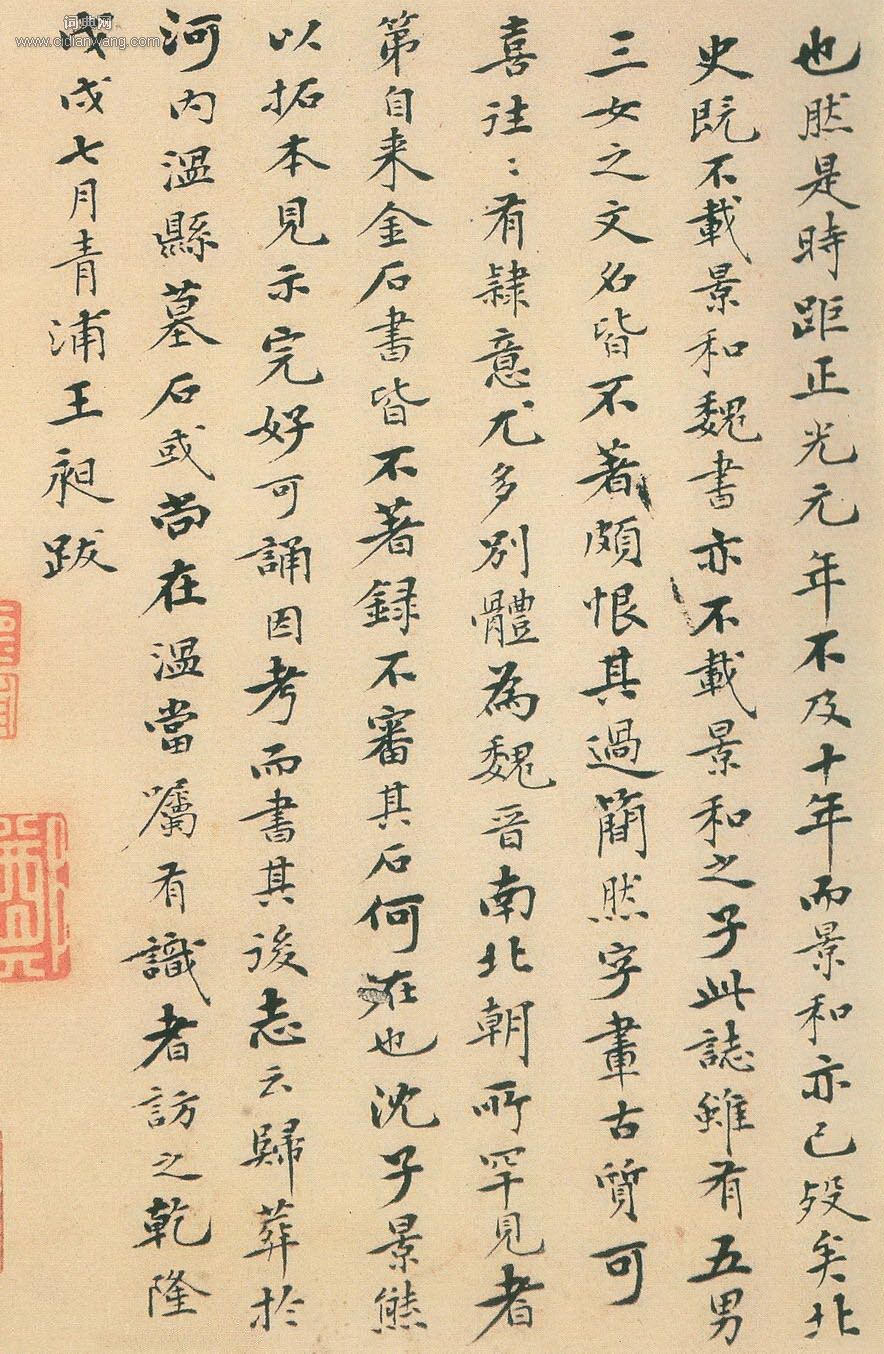 词典网
www.cidianwang.com
也然是時距正光元年不及十年而景和亦已歿矣北
史既不載景和魏書亦不載景和之子此誌雖有五男
三女之文名皆不著頗恨其過簡然字畫古質可
喜往〻有隸意尤多別體為魏晉南北朝所罕見者
第自来金石書皆不著錄不審其石何在也沈子景熊
以拓本見示完好可誦因考而書其後志云歸葬於
河内溫縣墓石或尚在溫當囑有識者訪之乾隆
戊戌七月青浦王昶跋